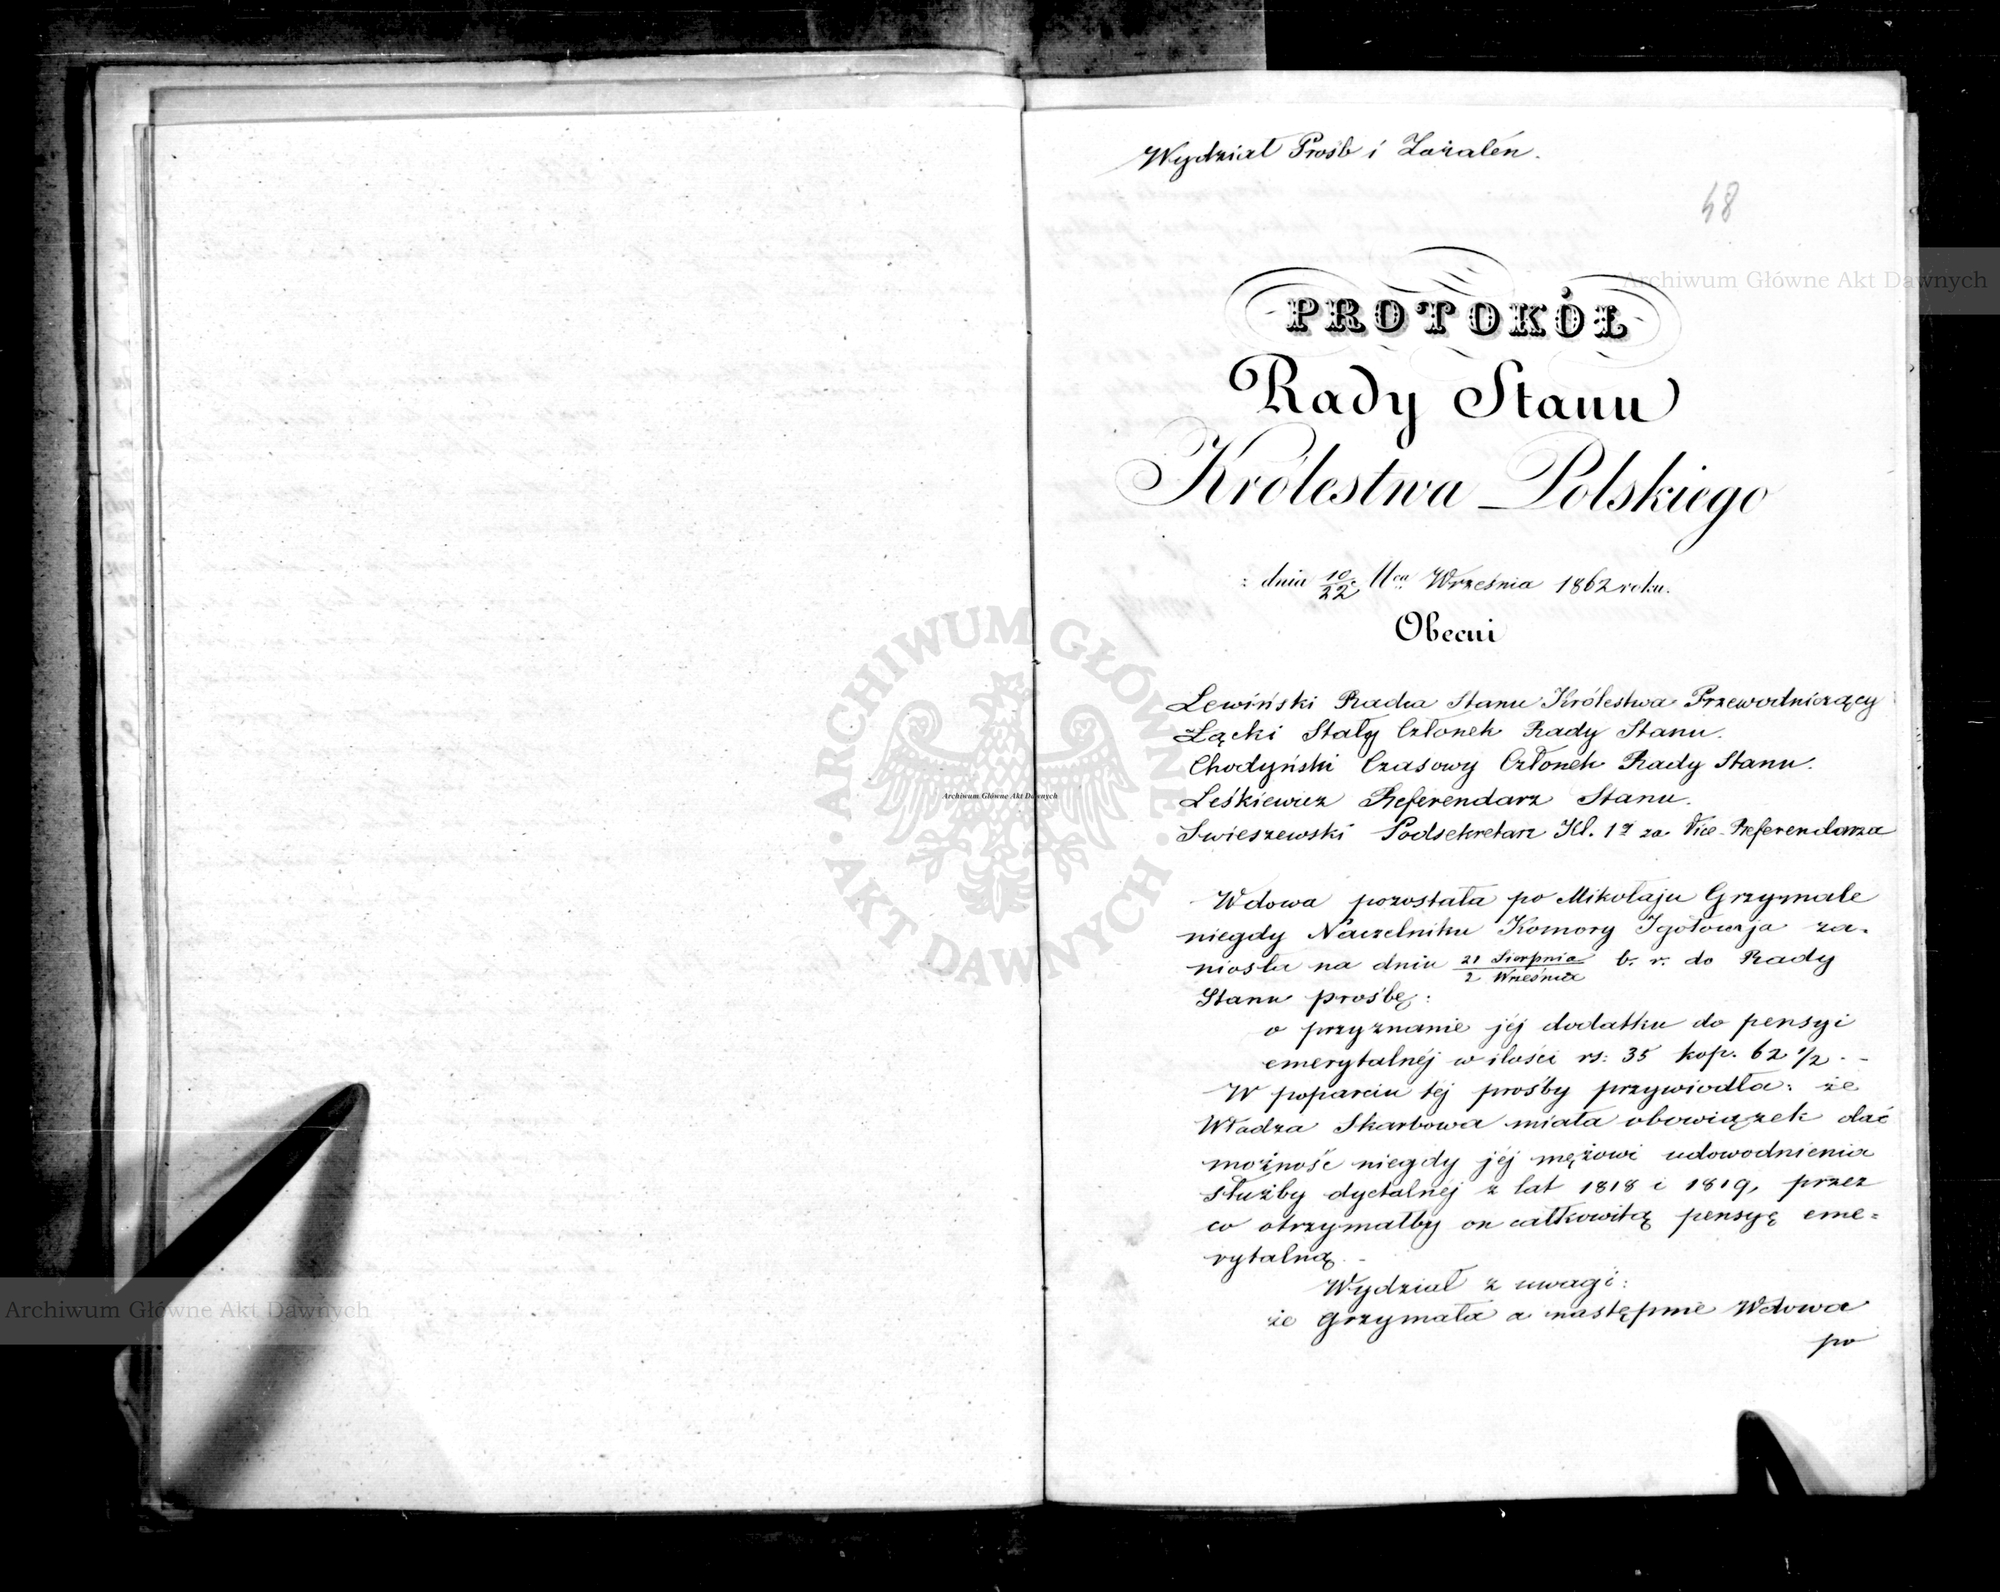 Wydział Prośb i Zażaleń.
48
PROTOKÓŁ
Rady Stanu
Królestwa Polskiego
dnia 10/22 Mca Września 1862 roku.
Obecni
Lewiński Radca Stanu Królestwa Przewodniczący
Łącki Stały Członek Rady Stanu.
Chodyński Czasowy Członek Rady Stanu.
Leśkiewicz Referendarz Stanu.
Swieszewski Podsekretarz Kl. 1ej za Vice-Referendarza
Wdowa pozostała po Mikołaju Grzymale
niegdy Naczelniku Komory Igołomja za-
niosła na dniu 21 Sierpnia/2 Września b. r. do Rady
Stanu prośbę:
o przyznanie jéj dodatku do pensyi
emerytalnéj w ilości rs: 35 kop. 62 1/2. -
W poparciu téj prośby przywiodła: że
Władza Skarbowa miała obowiązek dać
możność niegdy jéj mężowi udowodnienia
służby dyetalnéj z lat 1818 i 1819, przez
co otrzymałby on całkowitą pensyę eme=
rytalną. -
Wydział z uwagi:
że Grzymała a następnie Wdowa
po
Archiwum Główne Akt Dawnych
Archiwum Główne Akt Dawnych
Archiwum Główne Akt Dawnych
ARCHIWUM GŁÓWNE
AKT DAWNYCH